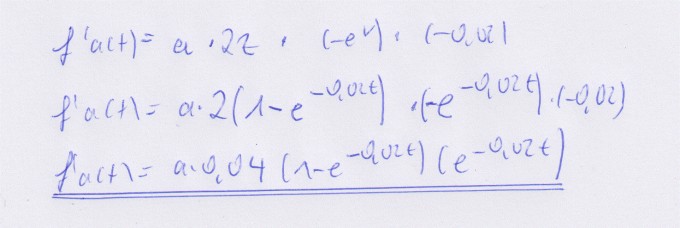 f'a(t) = a · 2z · (-e^v) · (-0,02)
f'a(t) = a · 2(1-e^{-0,02t}) · (-e^{-0,02t}) · (-0,02)
f'a(t) = a · 0,04 (1-e^{-0,02t}) (e^{-0,02t})